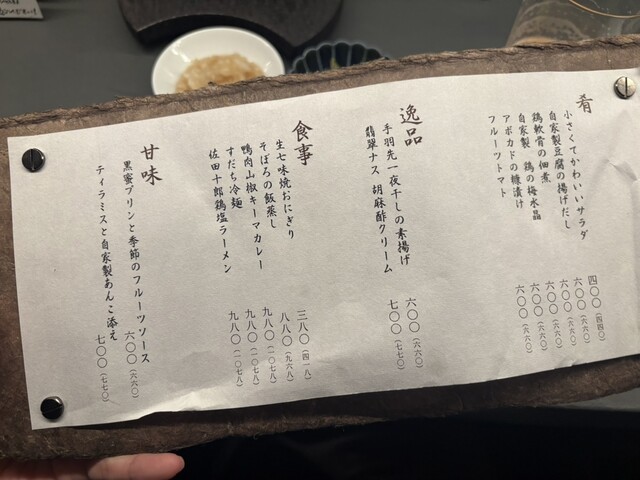 肴
小さくてかわいいサラダ 四〇〇(四四〇)
自家製豆腐の揚げだし 六〇〇(六六〇)
鶏軟骨の佃煮 六〇〇(六六〇)
自家製 鶏の梅水晶 六〇〇(六六〇)
アボカドの糠漬け 六〇〇(六六〇)
フルーツトマト 六〇〇(六六〇)
逸品
手羽先一夜干しの素揚げ 六〇〇(六六〇)
翡翠ナス 胡麻酢クリーム 七〇〇(七七〇)
食事
生七味焼おにぎり 三八〇(四一八)
そぼろの飯蒸し 八八〇(九六八)
鴨肉山椒キーマカレー 九八〇(一〇七八)
すだち冷麺 九八〇(一〇七八)
佐田十郎鶏塩ラーメン 九八〇(一〇七八)
甘味
黒蜜プリンと季節のフルーツソース 六〇〇(六六〇)
ティラミスと自家製あんこ添え 七〇〇(七七〇)